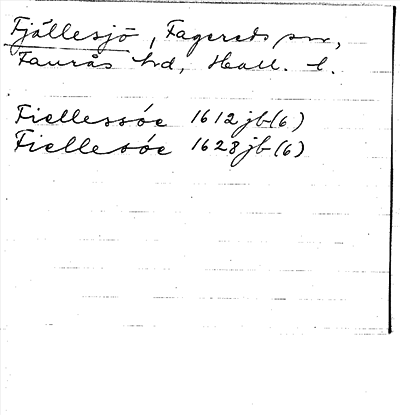 Fjällesjö, Fagereds sn,
Faurås hd, Hall. l.
Fiellessöe 1612 jb(6)
Fiellesöe 1628 jb(6)